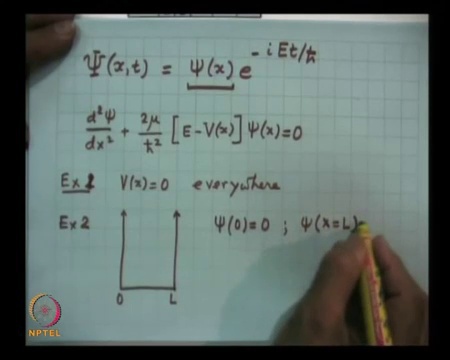 Ψ(x,t) = ψ(x) e^{-iEt/ħ}
d²ψ/dx² + 2μ/ħ² [E-V(x)] ψ(x)=0
Ex 1 V(x)=0 everywhere
Ex 2 ψ(0)=0 ; ψ(x=L)=
0 L
NPTEL